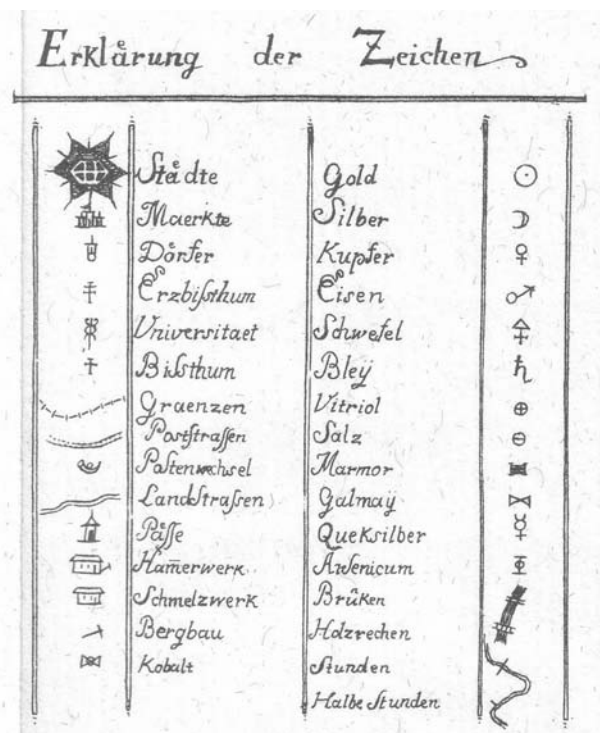 Erklårung der Zeichen
Stådte
Maerkte
Dörfer
Erzbiſsthum
Vniversitaet
Biſsthum
Graenzen
Poststraſsen
Postenwechsel
Landstraſsen
Påſſe
Ham̅erwerk
Schmelzwerk
Bergbau
Kobalt
Gold
Silber
Kupfer
Eisen
Schwefel
Bleÿ
Vitriol
Salz
Marmor
Galmaÿ
Queksilber
Arsenicum
Brůken
Holzrechen
Stunden
Halbe Stunden